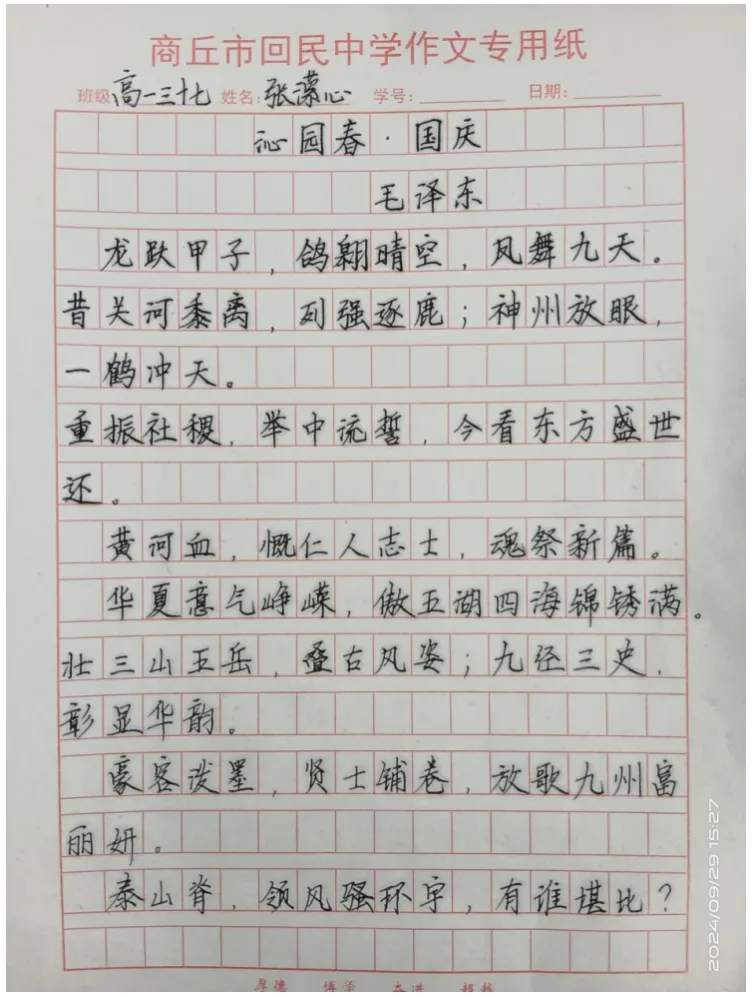 商丘市回民中学作文专用纸
班级 高一三十七 姓名: 张濛心 学号: 日期:
沁园春·国庆
毛泽东
龙跃甲子,鸽翱晴空,凤舞九天。
昔关河黍离,列强逐鹿;神州放眼,
一鹤冲天。
重振社稷,举中流誓,今看东方盛世
还。
黄河血,慨仁人志士,魂祭新篇。
华夏意气峥嵘,傲五湖四海锦锈满。
壮三山五岳,叠古风姿;九经三史,
彰显华韵。
豪客泼墨,贤士铺卷,放歌九州富
丽妍。
泰山脊,领风骚环宇,有谁堪比?
厚德 博学 奋进 超越
2024/09/29 15:27